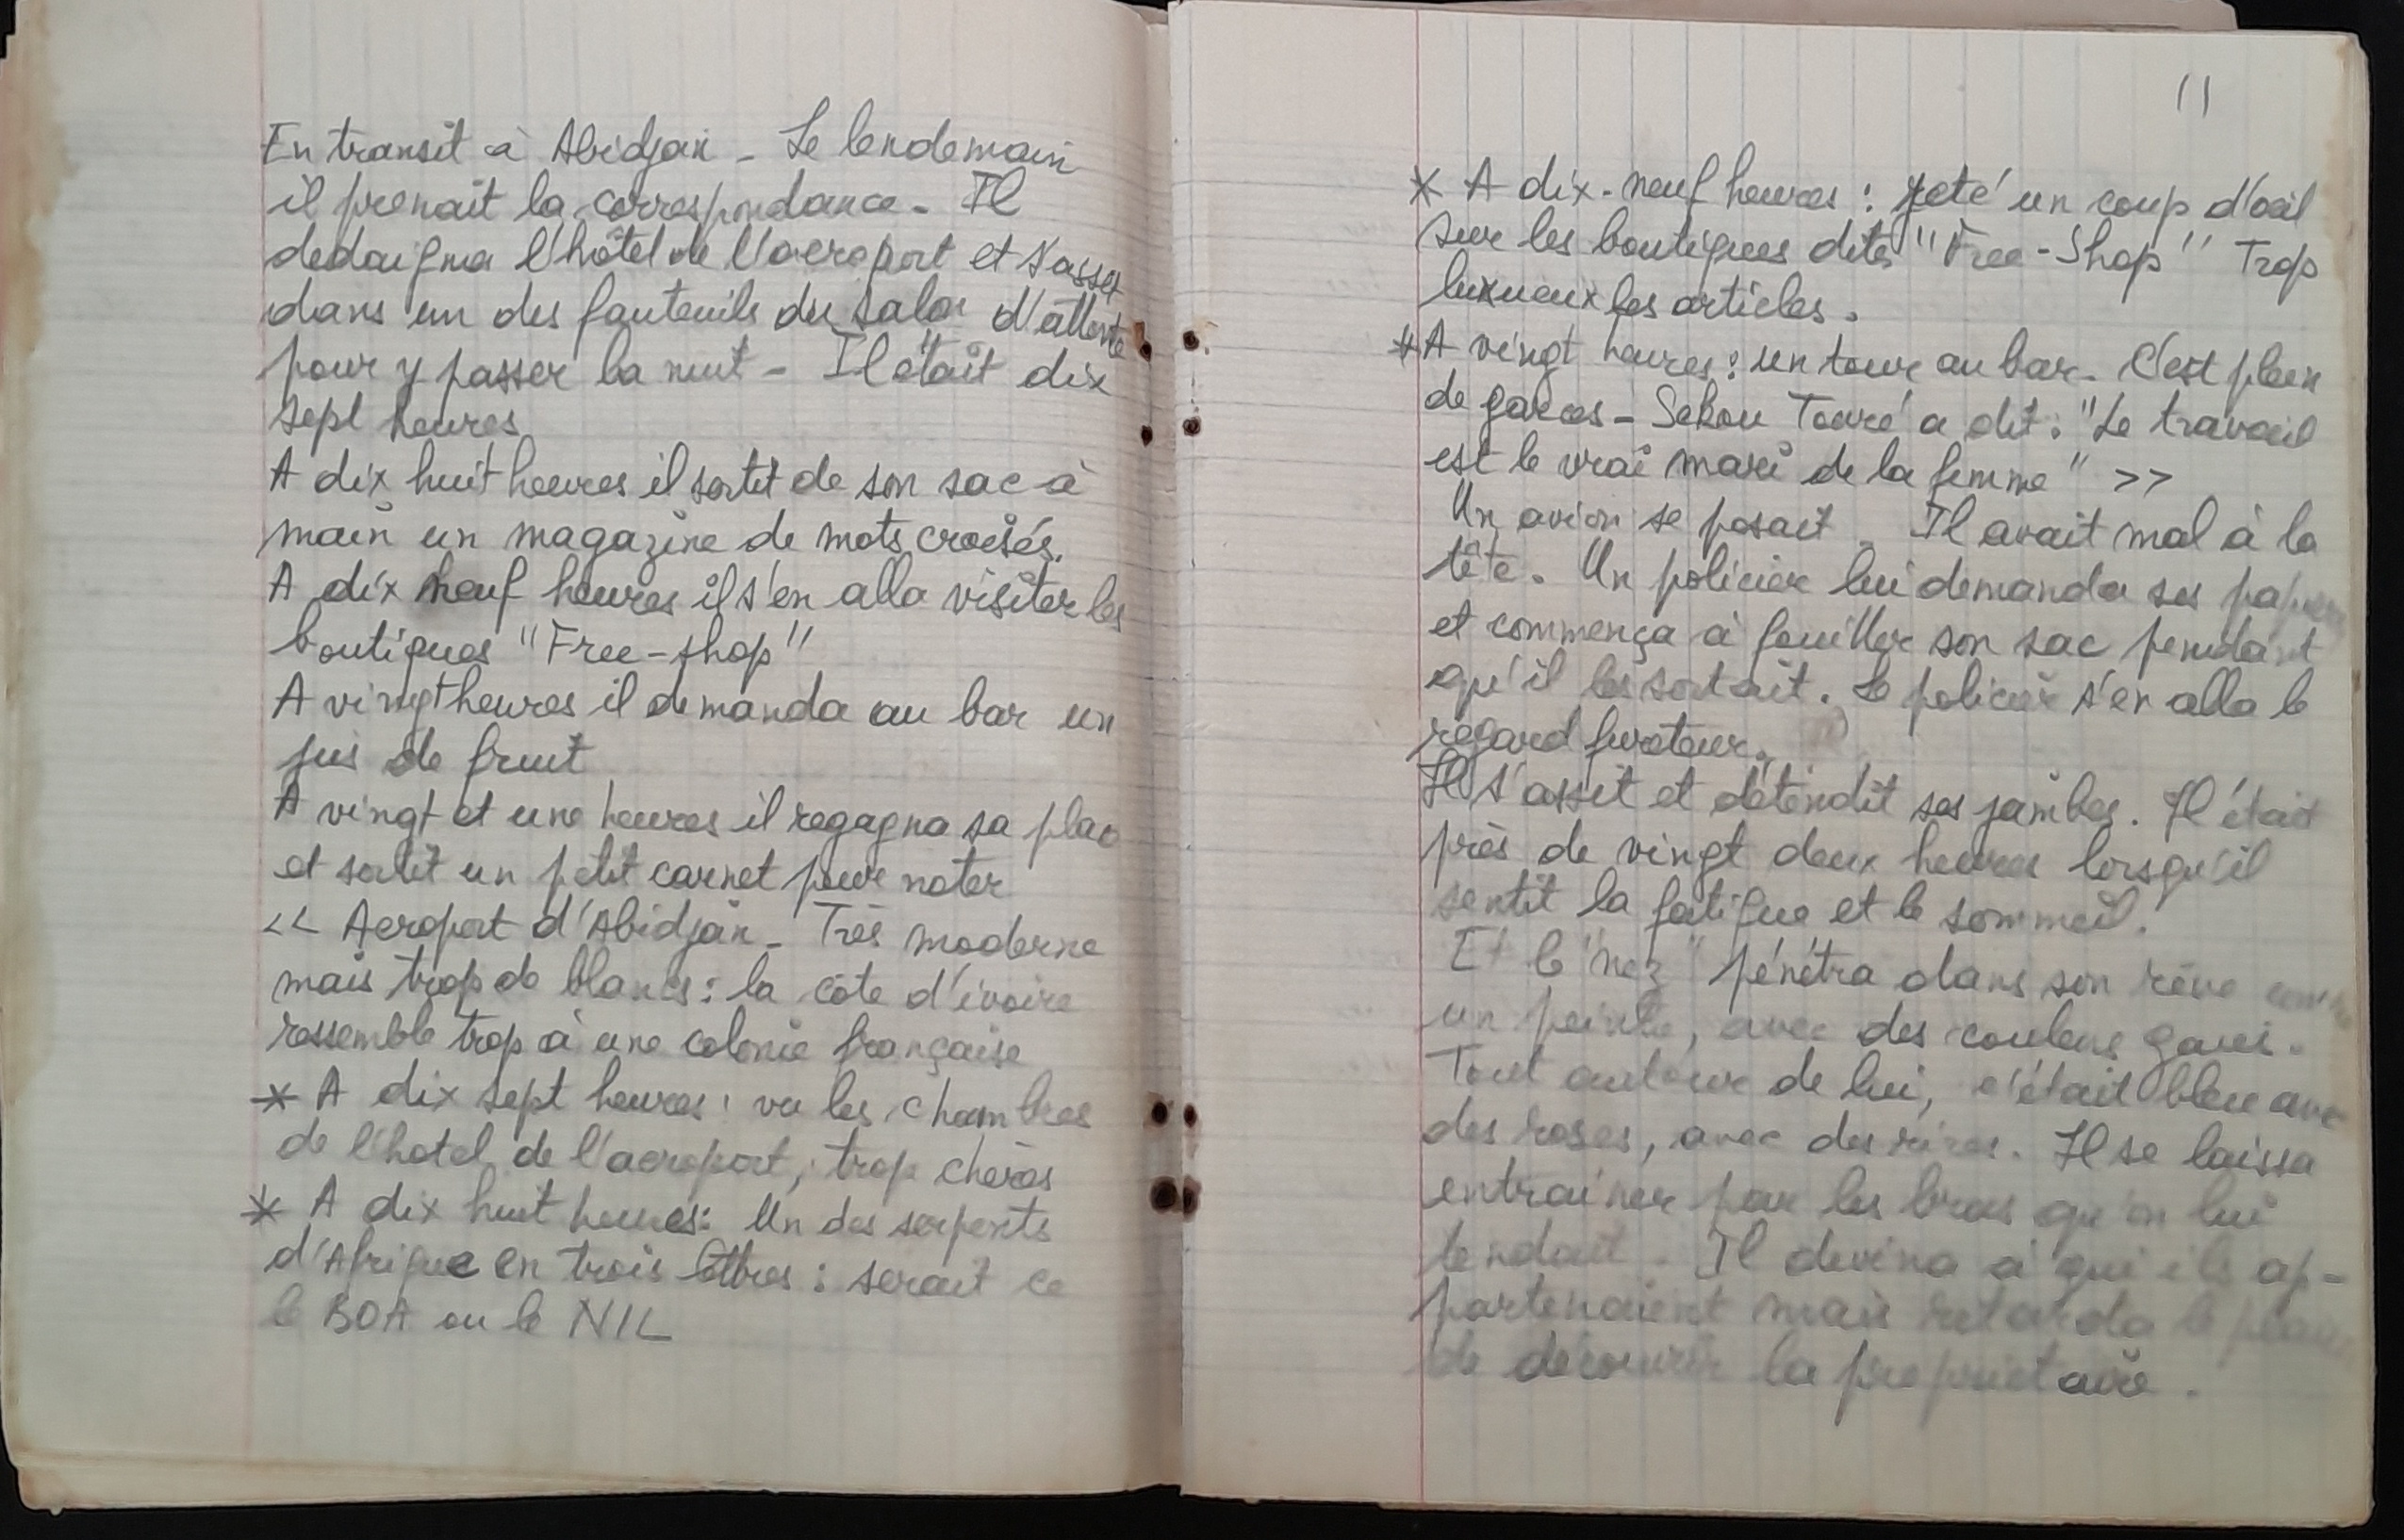 En transit à Abidjan - Le lendemain
il prenait la correspondance - Il
dedaigna l'hôtel de l'aeroport et s'asset
dans un des fauteuils du salon d'attente
pour y passer la nuit - Il était dix
sept heures
A dix huit heures il sortit de son sac à
main un magazine de mots croisés.
A dix neuf heures il s'en alla visiter les
boutiques "Free-shop"
A vingt heures il demanda au bar un
jus de fruit
A vingt et une heures il regagna sa place
et sortit un petit carnet pour noter
<< Aeroport d'Abidjan - Très moderne
mais trop de blancs : la côte d'ivoire
ressemble trop à une colonie française
* A dix sept heures : vu les chambres
de l'hotel de l'aeroport, trop chères
* A dix huit heures : Un des serpents
d'Afrique en trois lettres : serait ce
le BOA ou le NIL
11
* A dix-neuf heures : jeté un coup d'oeil
sur les boutiques dites "Free-Shop" Trop
luxueux les articles.
* A vingt heures : un tour au bar - C'est plein
de garces - Sekou Touré a dit : "Le travail
est le vrai mari de la femme" >>
Un avion se posait. Il avait mal à la
tête. Un policier lui demanda ses papiers
et commença à fouiller son sac pendant
qu'il les sortait. Le policier s'en alla le
regard fureteur.
Il s'assit et détendit ses jambes. Il était
près de vingt deux heures lorsqu'il
sentit la fatigue et le sommeil.
Et le "nez" pénétra dans son rêve comme
un peintre, avec des couleurs gaies.
Tout autour de lui, c'était bleu avec
des roses, avec des rires. Il se laissa
entrainer par les bras qu'on lui
tendait. Il devina à qui ils ap-
partenaient mais retarda le plaisir
de découvrir la propriétaire.